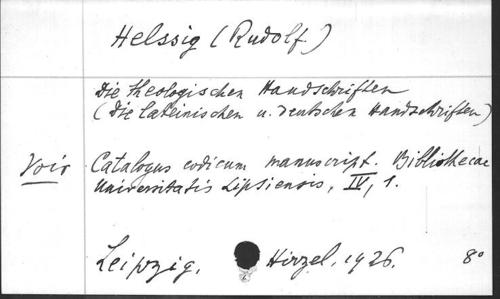 Helssig (Rudolf)
Die theologischen Handschriften
(Die lateinischen u. deutschen Handschriften)
Voir Catalogus codicum manuscript. Bibliothecae
Universitatis Lipsiensis, IV, 1.
Leipzig, Hirzel, 1926. 8°